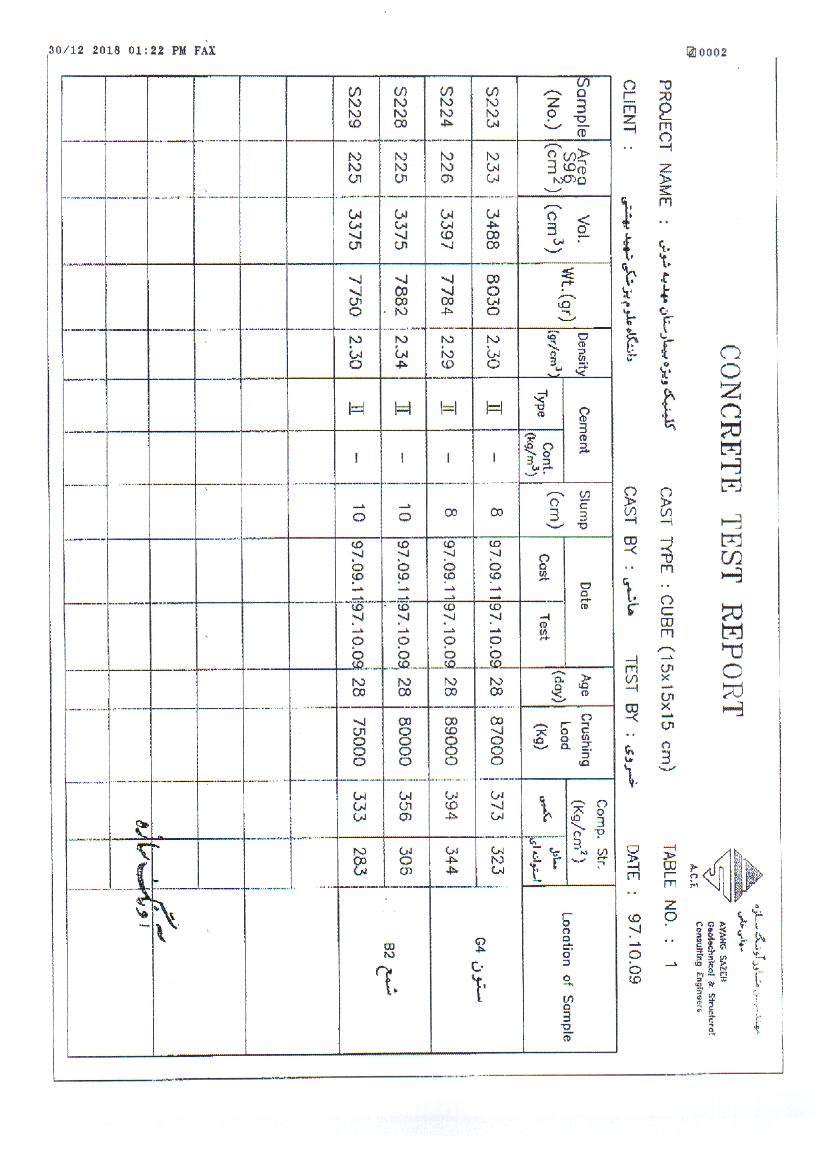 30/12 2018 01:22 PM FAX 0002
CONCRETE TEST REPORT
A.C.E
مهندسین مشاور آونگ سازه
AYANG SAZEH
Geotechnical & Structural
Consulting Engineers
PROJECT NAME : کلینیک ویژه بیمارستان مهدیه شوش CAST TYPE : CUBE (15x15x15 cm) TABLE NO. : 1
CLIENT : دانشگاه علوم پزشکی شهید بهشتی CAST BY : هاشمی TEST BY : خسروی DATE : 97.10.09
Sample (No.) Area S96 (cm²) Vol. (cm³) Wt.(gr) Density (gr/cm³) Cement Type Cont. (kg/m³) Slump (cm) Date Cast Test Age (day) Crushing Load (Kg) Comp. Str. (Kg/cm²) مکعبی معادل استوانه‌ای Location of Sample
S223 233 3488 8030 2.30 II – 8 97.09.11 97.10.09 28 87000 373 323 ستون G4
S224 226 3397 7784 2.29 II – 8 97.09.11 97.10.09 28 89000 394 344
S228 225 3375 7882 2.34 II – 10 97.09.11 97.10.09 28 80000 356 306 شمع B2
S229 225 3375 7750 2.30 II – 10 97.09.11 97.10.09 28 75000 333 283